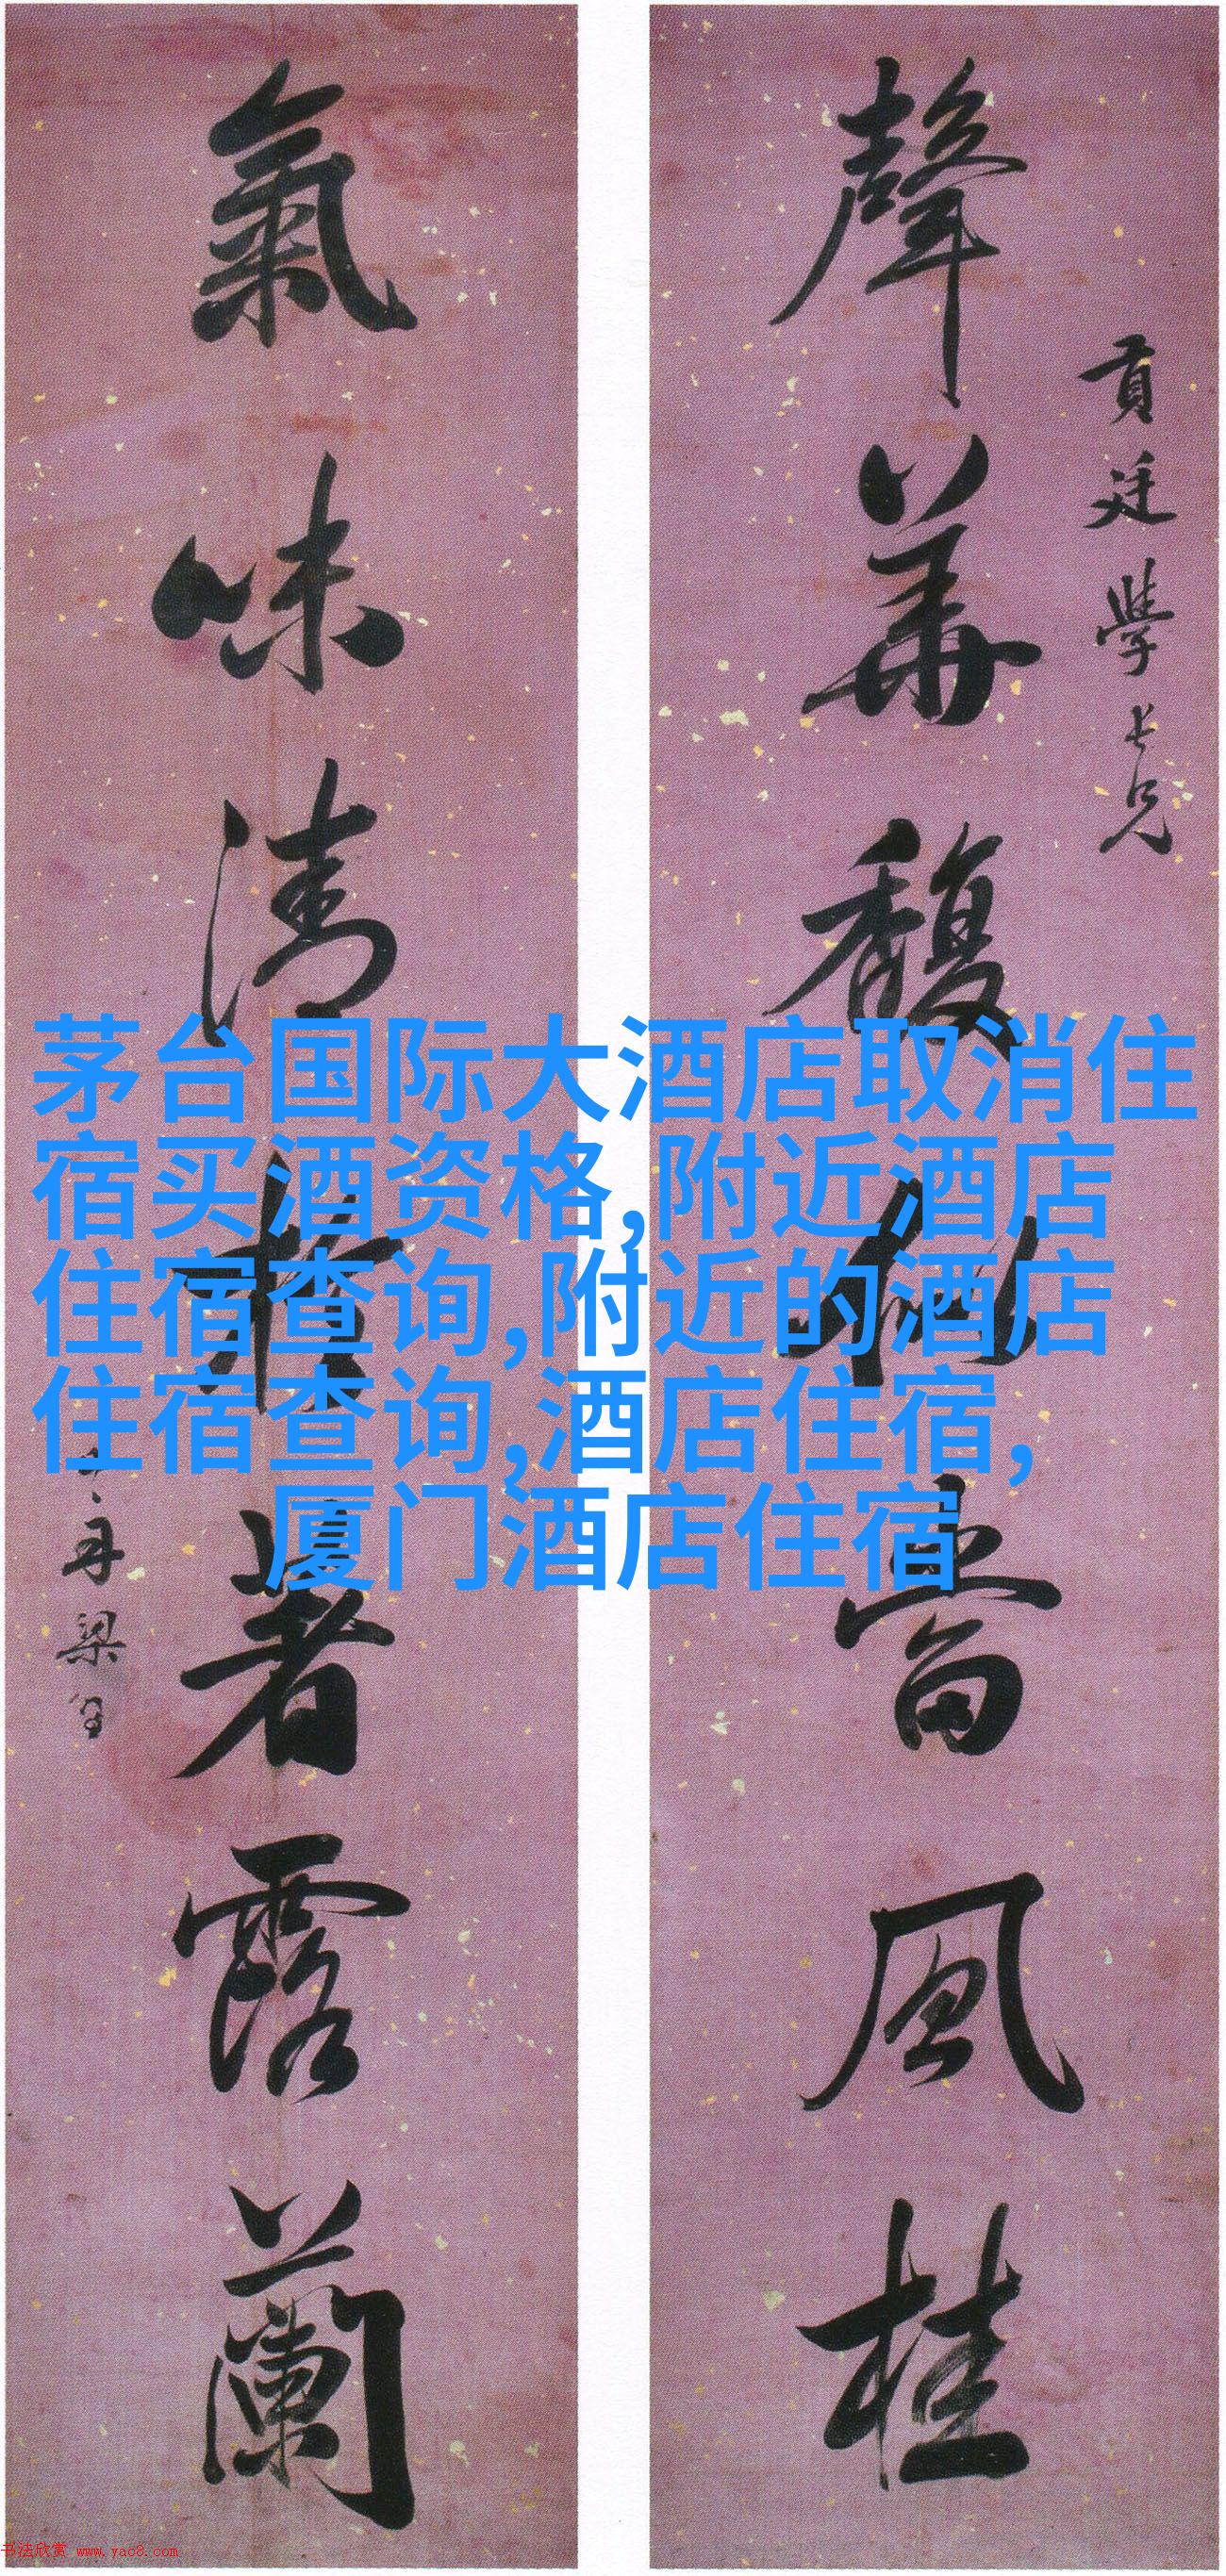 聲華馥秋當風桂
貢廷學長兄
氣味清著露蘭
梁
茅台国际大酒店取消住
宿买酒资格,附近酒店
住宿查询,附近的酒店
住宿查询,酒店住宿,
厦门酒店住宿
书法欣赏 www.yac8.com